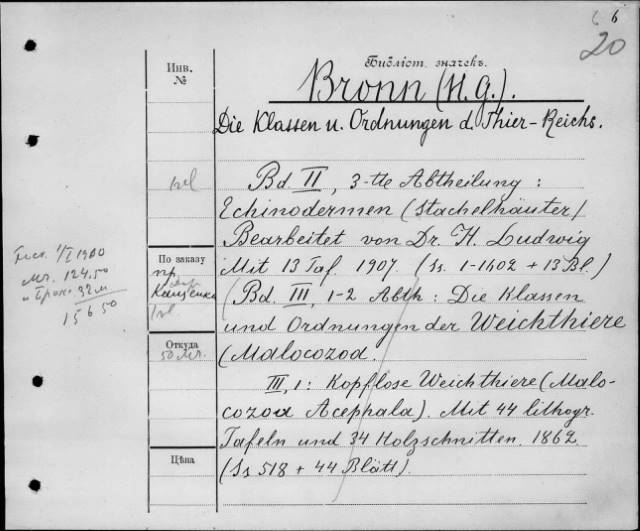 6
20
Инв.
№
Библіот. значекъ.
Bronn (H. G.).
Die Klassen u. Ordnungen d. Thier-Reichs.
Bd. II, 3-tte Abtheilung:
Echinodermen (Stachelhäuter/
Bearbeitet von Dr. H. Ludwig
По заказу
Mit 13 Taf. 1907. (Ss. 1-1602 + 13 Bl.)
пр.
Кащенко
(Bd. III, 1-2 Abth: Die Klassen
und Ordnungen der Weichthiere
Откуда
50 Mr.
(Malocozoa.
III, 1: Kopflose Weichthiere (Malo-
cozoa Acephala). Mit 44 lithogr.
Tafeln und 34 Holzschnitten. 1862.
Цѣна
(Ss 518 + 44 Blätt).
1/I 1900
Mr. 124.50
32 M
156 50